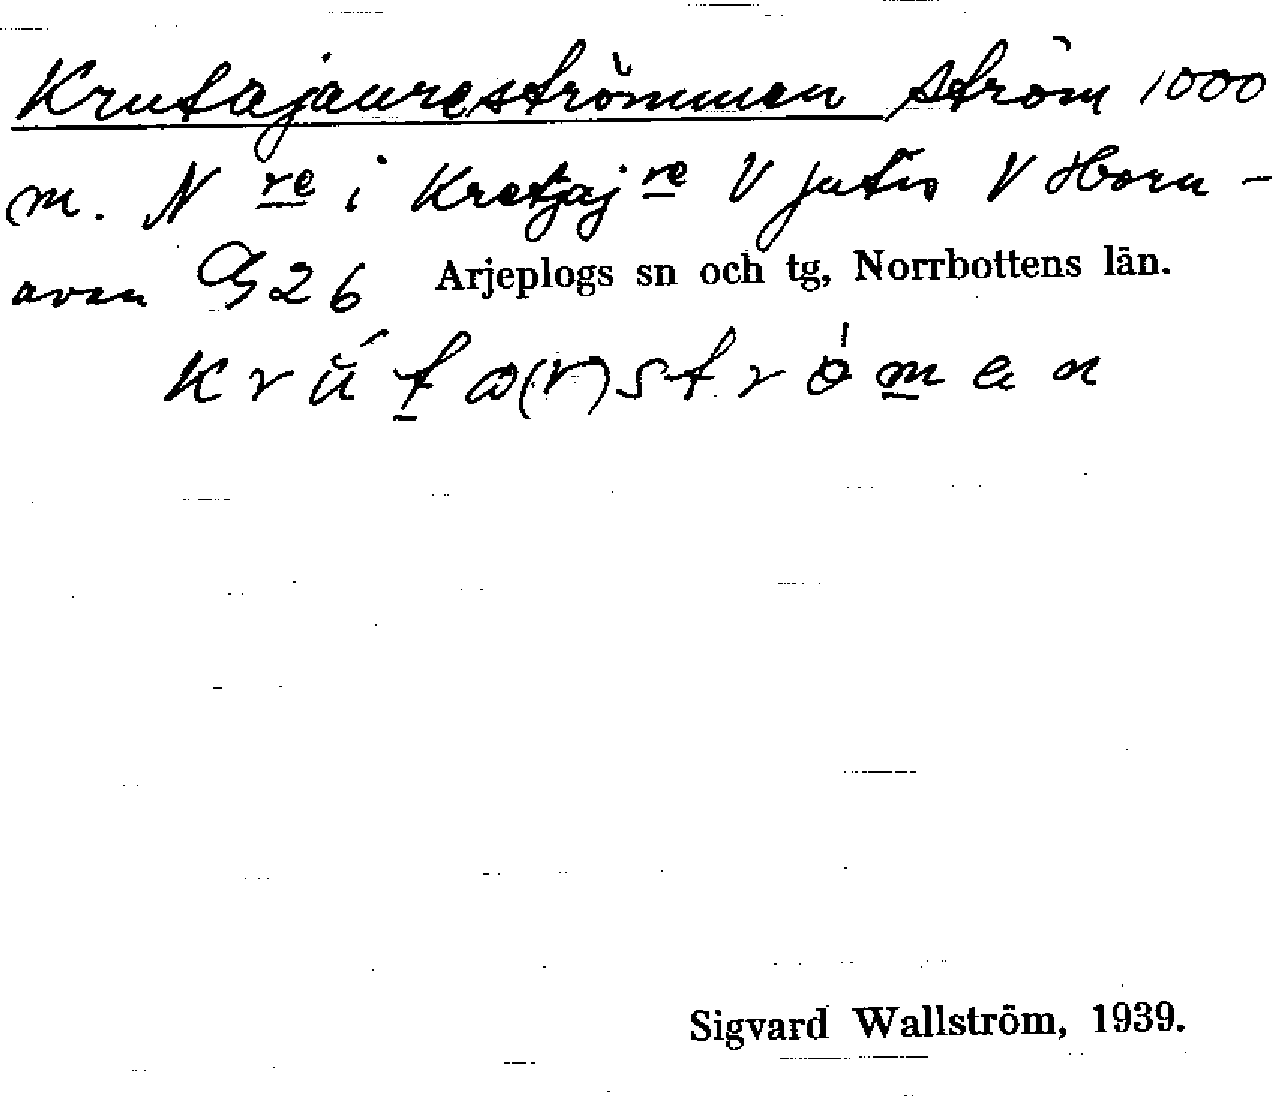 Krutajaureströmmen ström 1000
m. N re i Kretjaj re V Jutis V Horn-
avan G26 Arjeplogs sn och tg, Norrbottens län.
krŭ́ta(r)strömen
Sigvard Wallström, 1939.